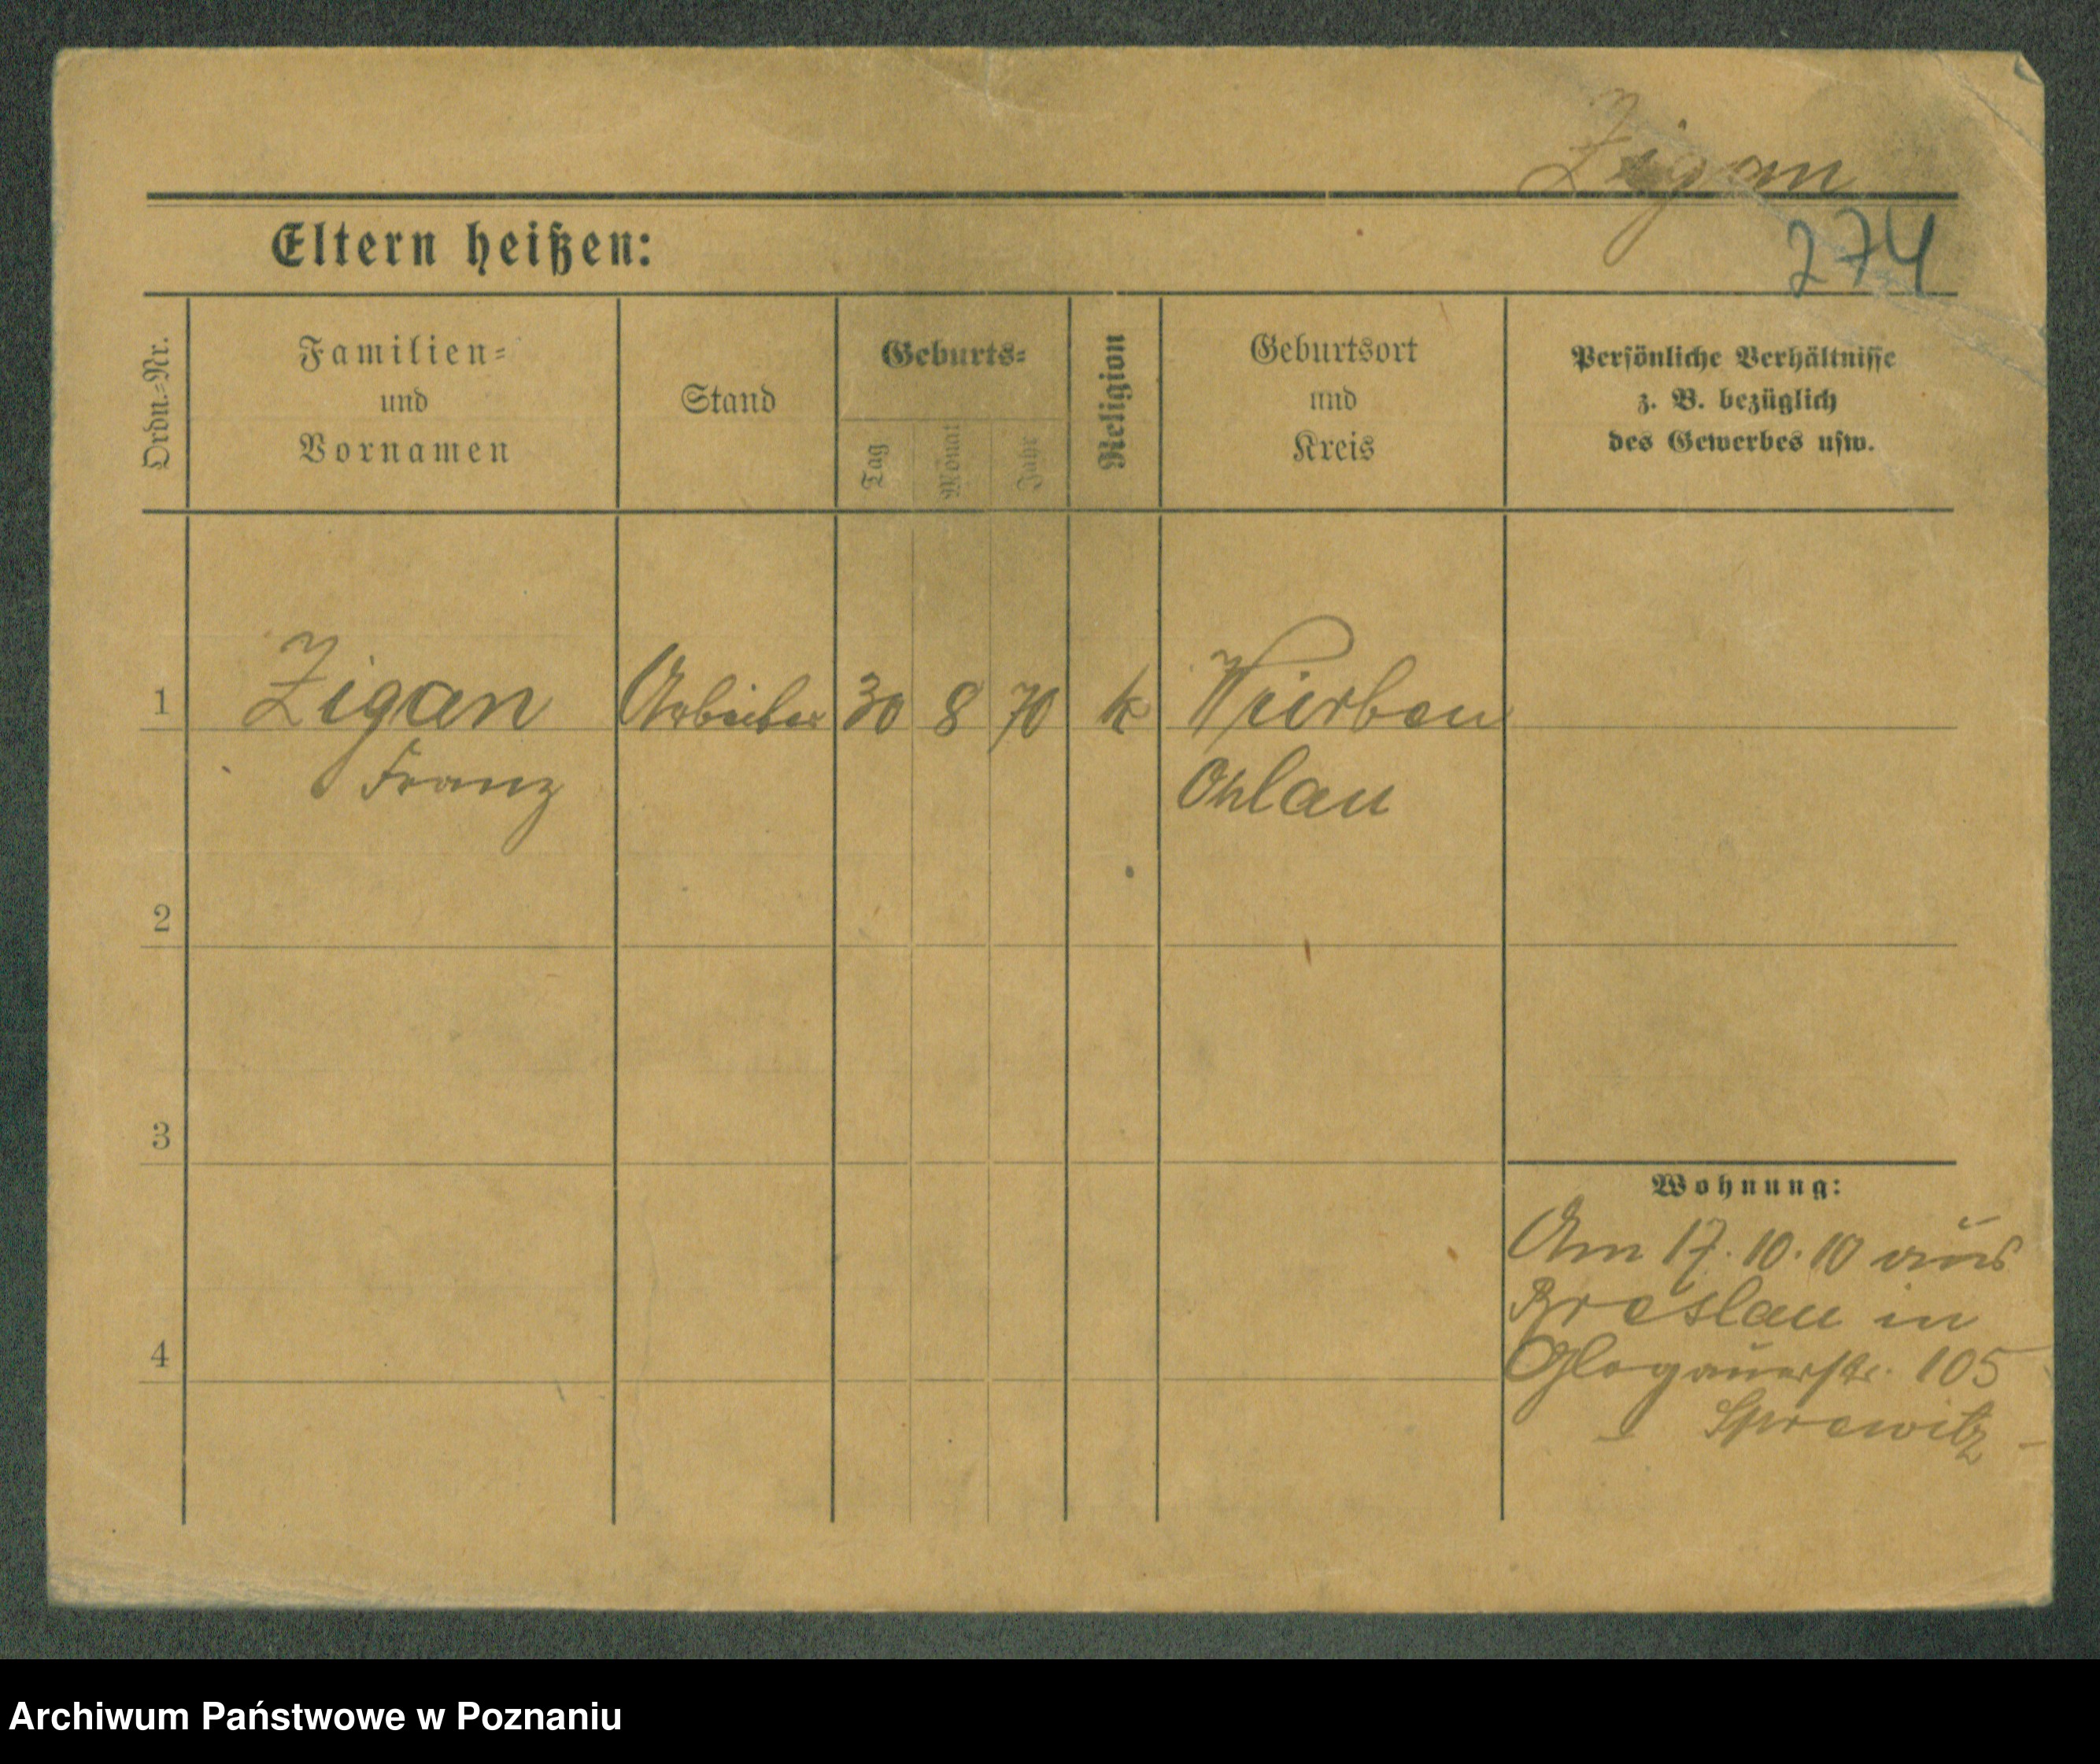 Zigan
Eltern heißen:
274
Ordn.=Nr.
Familien=
und
Vornamen
Stand
Geburts=
Tag
Monat
Jahr
Religion
Geburtsort
und
Kreis
Persönliche Verhältnisse
z. B. bezüglich
des Gewerbes usw.
1
Zigan Arbeiter 30 8 70 k
Franz Ohlau
2
3
Wohnung:
Am 17.10.10 aus
Breslau in
4
Glogauerstr. 105
Archiwum Państwowe w Poznaniu